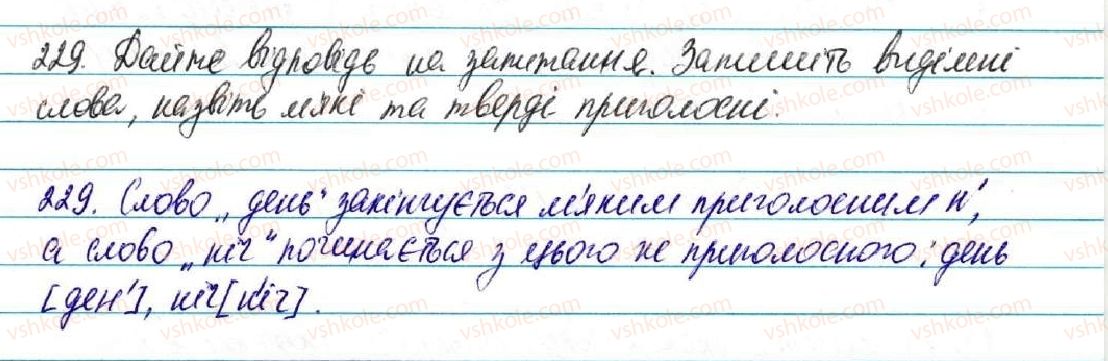 229. Дайте відповідь на запитання. Запишіть виділені
слова, назвіть м'які та тверді приголосні.
229. Слово „день" закінчується м'яким приголосним н',
а слово „ніч" починається з цього ж приголосного: день
[ден'], ніч [н'іч].